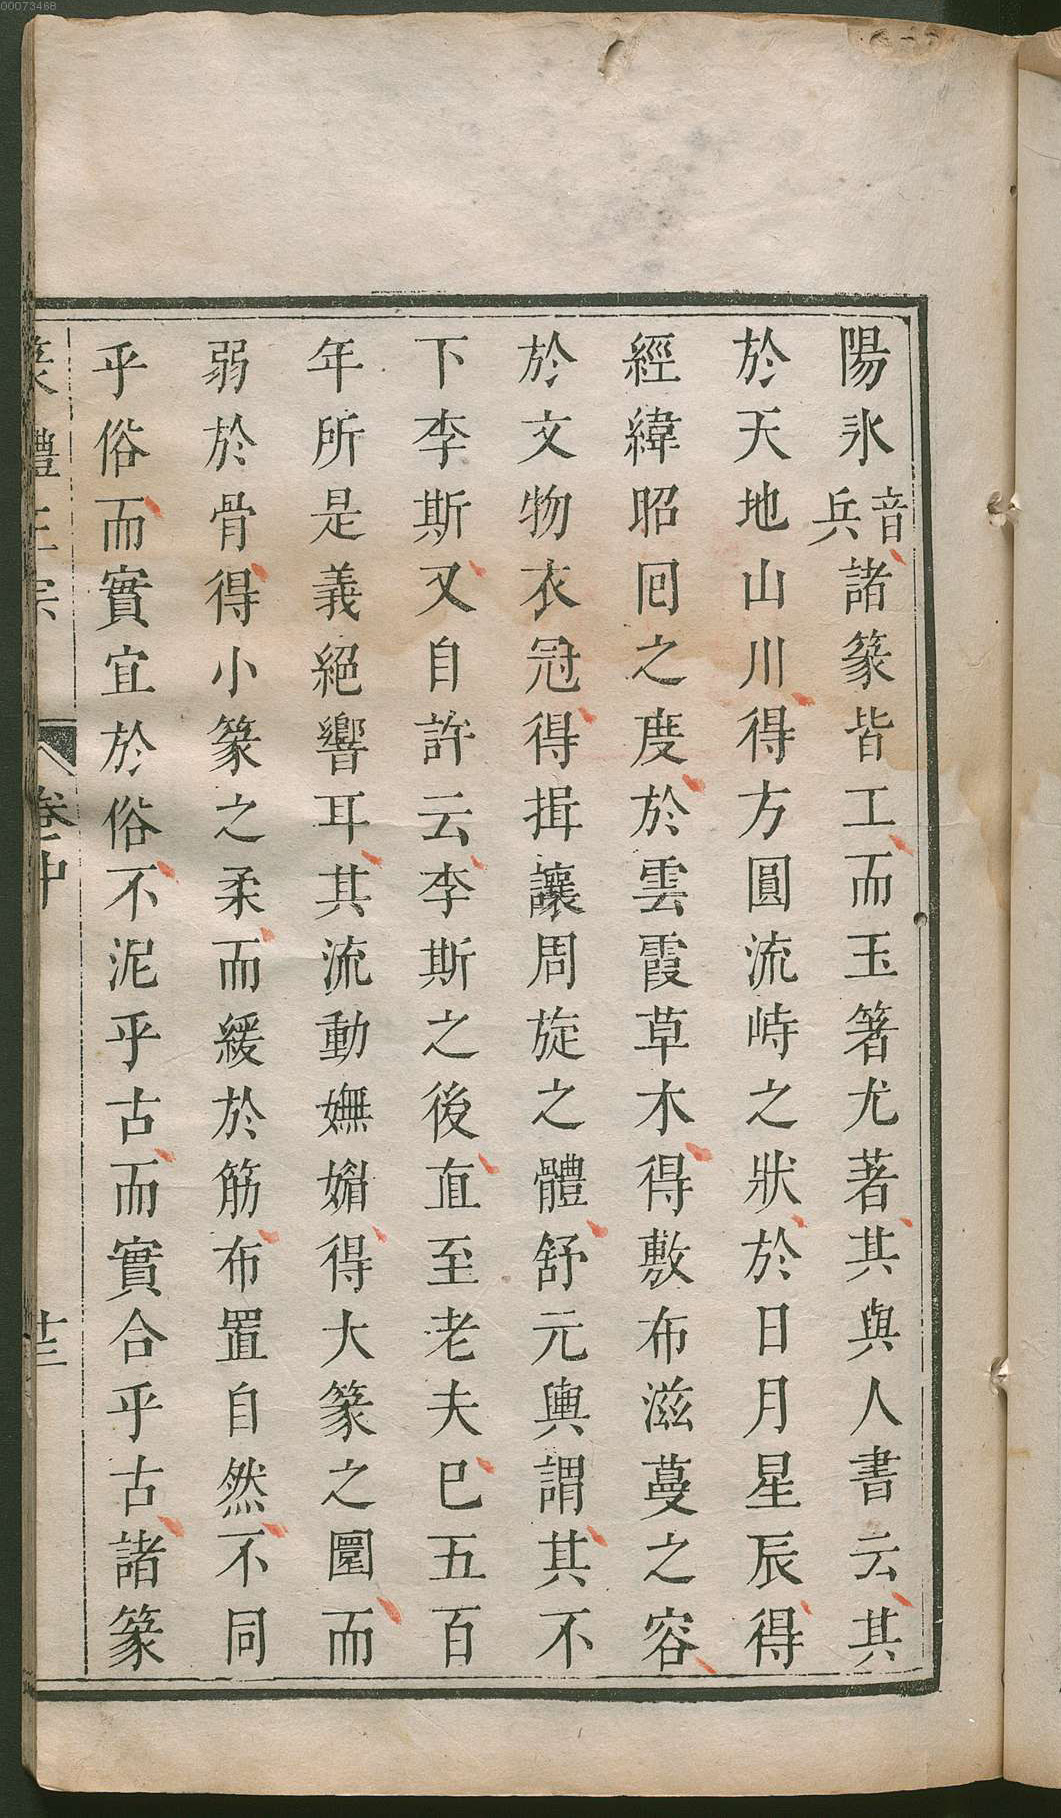 00073468
陽氷音兵諸篆皆工而玉箸尤著其與人書云其
於天地山川得方圓流峙之狀於日月星辰得
經緯昭囘之度於雲霞草木得敷布滋蔓之容
於文物衣冠得揖讓周旋之體舒元輿謂其不
下李斯又自許云李斯之後直至老夫巳五百
年所是義絕響耳其流動嫵媚得大篆之圓而
弱於骨得小篆之柔而緩於筋布置自然不同
乎俗而實宜於俗不泥乎古而實合乎古諸篆
篆體正宗 卷中 十三